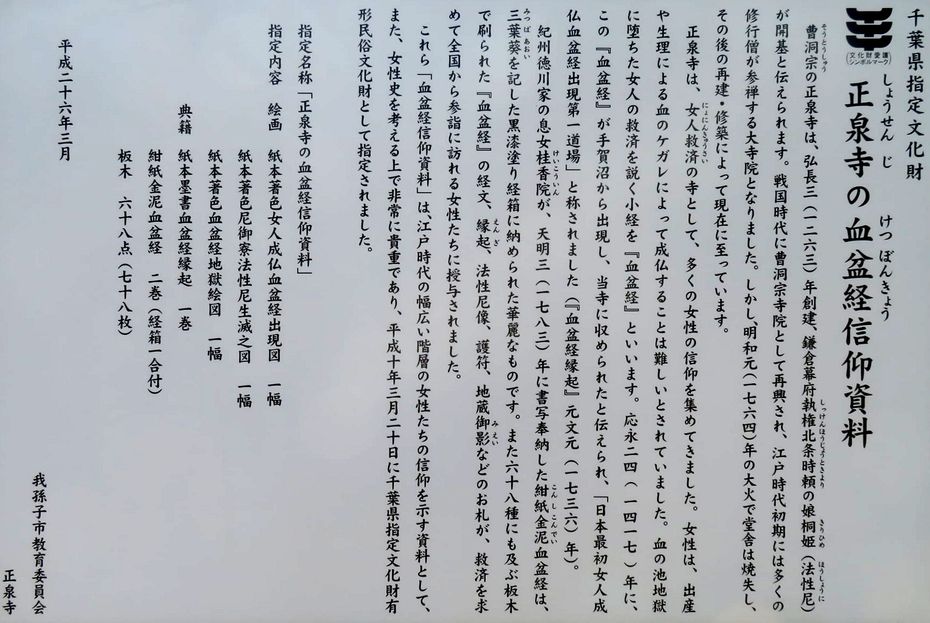 千葉県指定文化財
(文化財愛護シンボルマーク)
しょうせんじ けつぼんきょう
正泉寺の血盆経信仰資料
曹洞宗の正泉寺は、弘長三(一二六三)年創建、鎌倉幕府執権北条時頼の娘桐姫(法性尼)
そうとうしゅう しっけんほうじょうときより きりひめ ほうしょうに
が開基と伝えられます。戦国時代に曹洞宗寺院として再興され、江戸時代初期には多くの
修行僧が参禅する大寺院となりました。しかし、明和元(一七六四)年の大火で堂舎は焼失し、
その後の再建・修築によって現在に至っています。
正泉寺は、女人救済の寺として、多くの女性の信仰を集めてきました。女性は、出産
にょにんきゅうさい
や生理による血のケガレによって成仏することは難しいとされていました。血の池地獄
に堕ちた女人の救済を説く小経を『血盆経』といいます。応永二四(一四一七)年に、
この『血盆経』が手賀沼から出現し、当寺に収められたと伝えられ、「日本最初女人成
仏血盆経出現第一道場」と称されました(『血盆経縁起』元文元(一七三六)年)。
紀州徳川家の息女桂香院が、天明三(一七八三)年に書写奉納した紺紙金泥血盆経は、
けいこういん こんしこんでい
三葉葵を記した黒漆塗り経箱に納められた華麗なものです。また六十八種にも及ぶ板木
みつばあおい
で刷られた『血盆経』の経文、縁起、法性尼像、護符、地蔵御影などのお札が、救済を求
えんぎ みえい
めて全国から参詣に訪れる女性たちに授与されました。
これら「血盆経信仰資料」は、江戸時代の幅広い階層の女性たちの信仰を示す資料として、
また、女性史を考える上で非常に貴重であり、平成十年三月二十日に千葉県指定文化財有
形民俗文化財として指定されました。
指定名称「正泉寺の血盆経信仰資料」
指定内容 絵画 紙本著色女人成仏血盆経出現図 一幅
紙本著色尼御寮法性尼生滅之図 一幅
紙本著色血盆経地獄絵図 一幅
典籍 紙本墨書血盆経縁起 一巻
紺紙金泥血盆経 二巻(経箱一合付)
板木 六十八点(七十八枚)
平成二十六年三月
我孫子市教育委員会
正泉寺